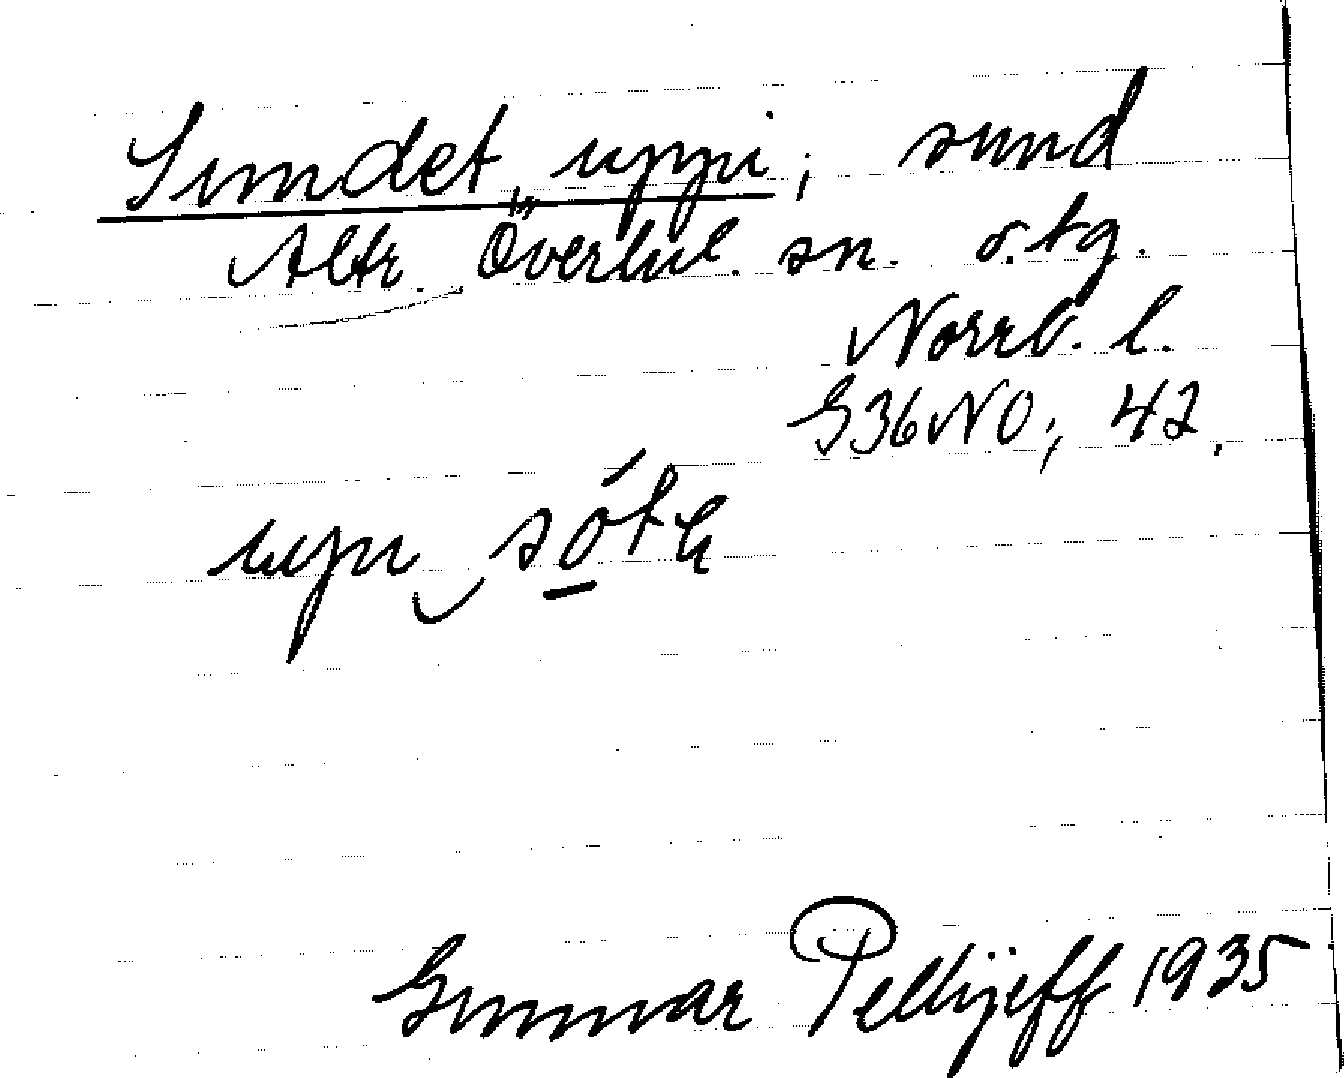 Sundet, uppi, ; sund
Altr. Överlul. sn. o.tg.
Norrb. l.
G36NO; 42.
upu sótε
Gunnar Pellijeff 1935